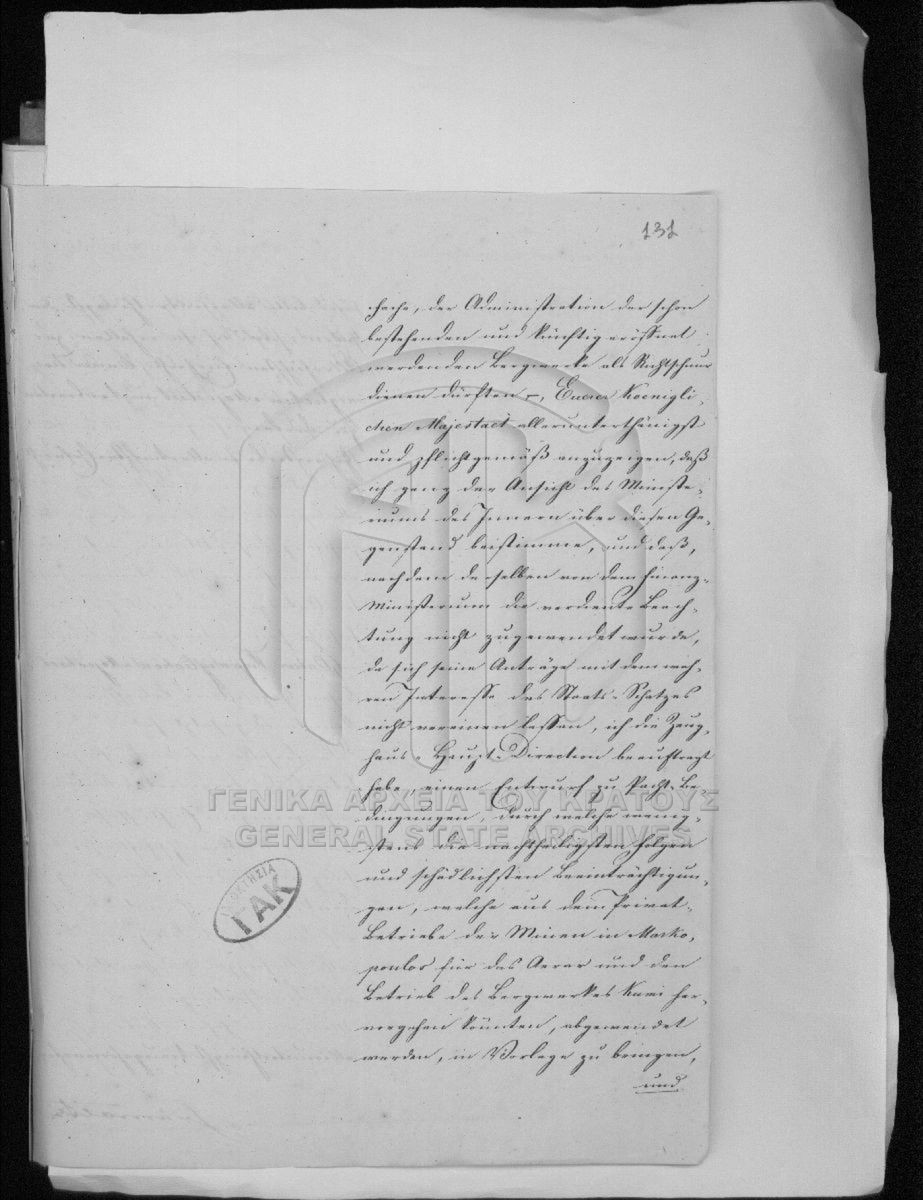 131
sache, der Administration der schon
bestehenden und künftig eröffnet
werdenden Bergwerke als Richtschnur
dienen dürften –, Euerer Koenigli-
chen Majestaet allerunterthänigst
und pflichtgemäß anzuzeigen, daß
ich ganz der Ansicht des Ministe-
riums des Innern über diesen Ge-
genstand beistimme, und daß,
nachdem derselben von dem Finanz-
Ministerium die verdiente Beach-
tung nicht zugewendet wurde,
da sich seine Anträge mit dem wah-
ren Interesse des Staats-Schatzes
nicht vereinen lassen, ich die Zeug-
haus-Haupt-Direction beauftragt
habe, einen Entwurf zu Pacht-Be-
dingungen, durch welche wenig-
stens die nachtheiligsten Folgen
und schädlichsten Beeinträchtigun-
gen, welche aus dem Privat-
Betriebe der Minen in Marko-
poulos für das Aerar und den
Betrieb des Bergwerkes Kumi her-
vorgehen könnten, abgewendet
werden, in Vorlage zu bringen,
und
ΓΕΝΙΚΑ ΑΡΧΕΙΑ ΤΟΥ ΚΡΑΤΟΥΣ
GENERAL STATE ARCHIVES
ΙΔΙΟΚΤΗΣΙΑ
ΓΑΚ